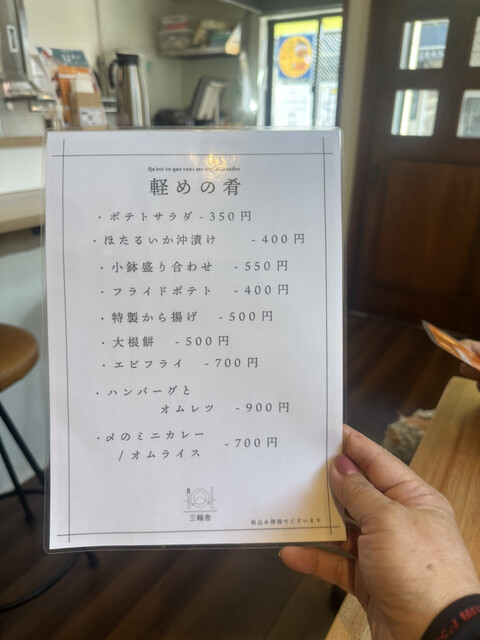 Qu'est-ce que vous
軽めの肴
・ポテトサラダ - 350円
・ほたるいか沖漬け - 400円
・小鉢盛り合わせ - 550円
・フライドポテト - 400円
・特製から揚げ - 500円
・大根餅 - 500円
・エビフライ - 700円
・ハンバーグと
オムレツ - 900円
・〆のミニカレー
/ オムライス - 700円
三輪舎
税込み価格でございます